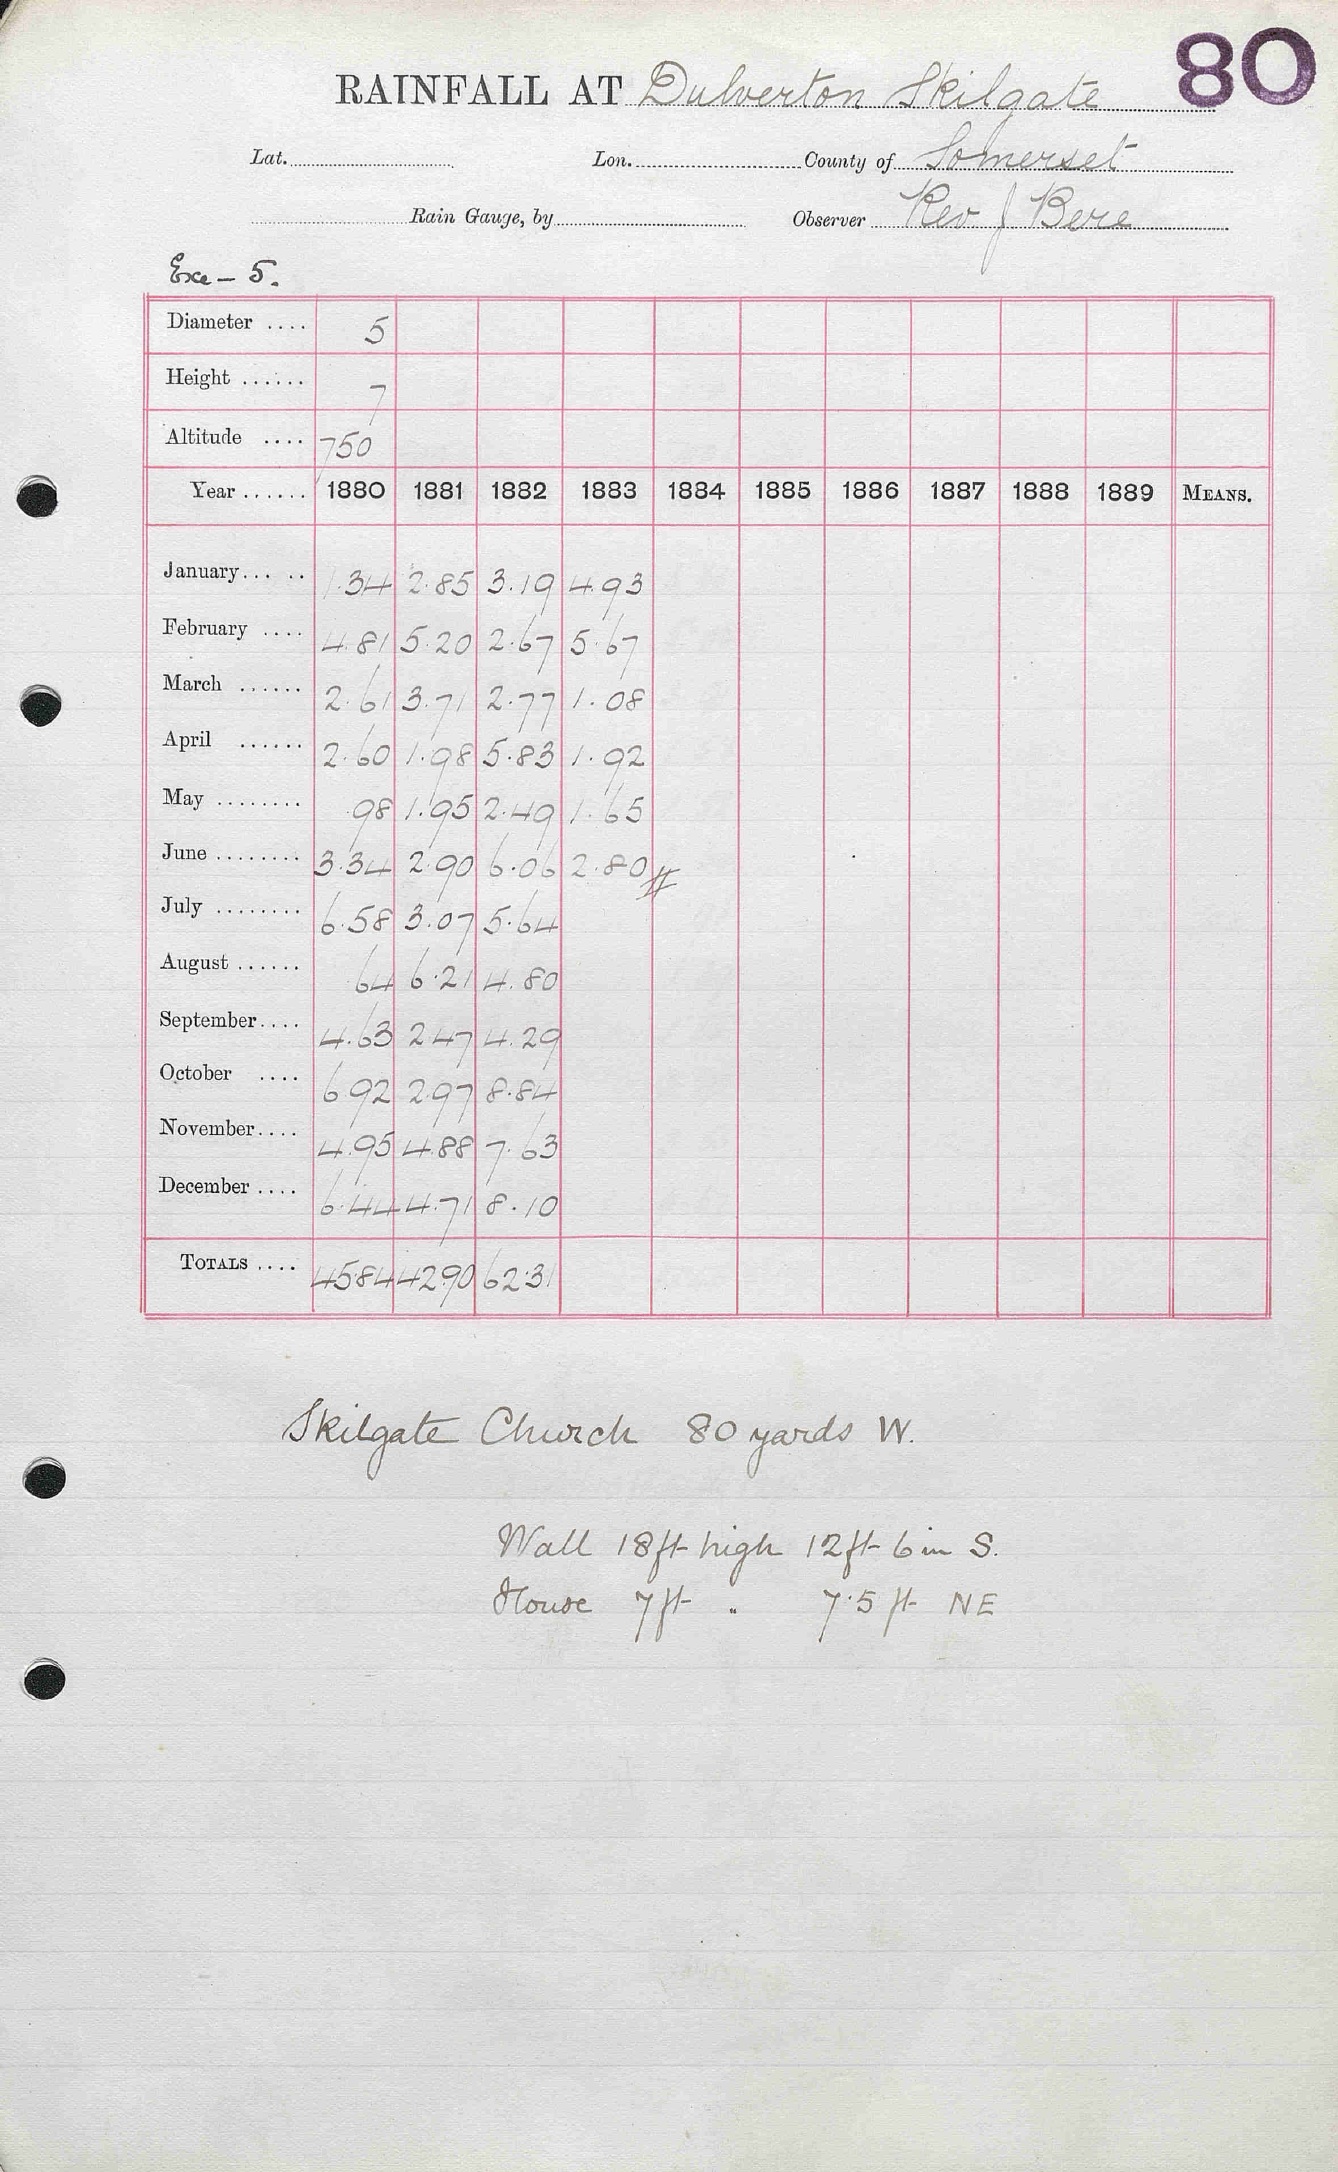 80
RAINFALL AT Dulverton Skilgate
Lat. Lon. County of Somerset
Rain Gauge, by Observer Rev J Bere
Exe - 5.
Diameter .... 5
Height ...... 7
Altitude .... 750
Year ...... 1880 1881 1882 1883 1884 1885 1886 1887 1888 1889 MEANS.
January... .. 1.34 2.85 3.19 4.93
February .... 4.81 5.20 2.67 5.67
March ...... 2.61 3.71 2.77 1.08
April ...... 2.60 1.98 5.83 1.92
May ........ .98 1.95 2.49 1.65
June ........ 3.34 2.90 6.06 2.80 #
July ........ 6.58 3.07 5.64
August ...... 64 6.21 4.80
September.... 4.63 2.47 4.29
October .... 6.92 2.97 8.84
November.... 4.95 4.88 7.63
December .... 6.44 4.71 8.10
TOTALS .... 45.84 42.90 62.31
Skilgate Church 80 yards W.
Wall 18ft high 12ft 6in S.
House 7ft " 7.5 ft NE